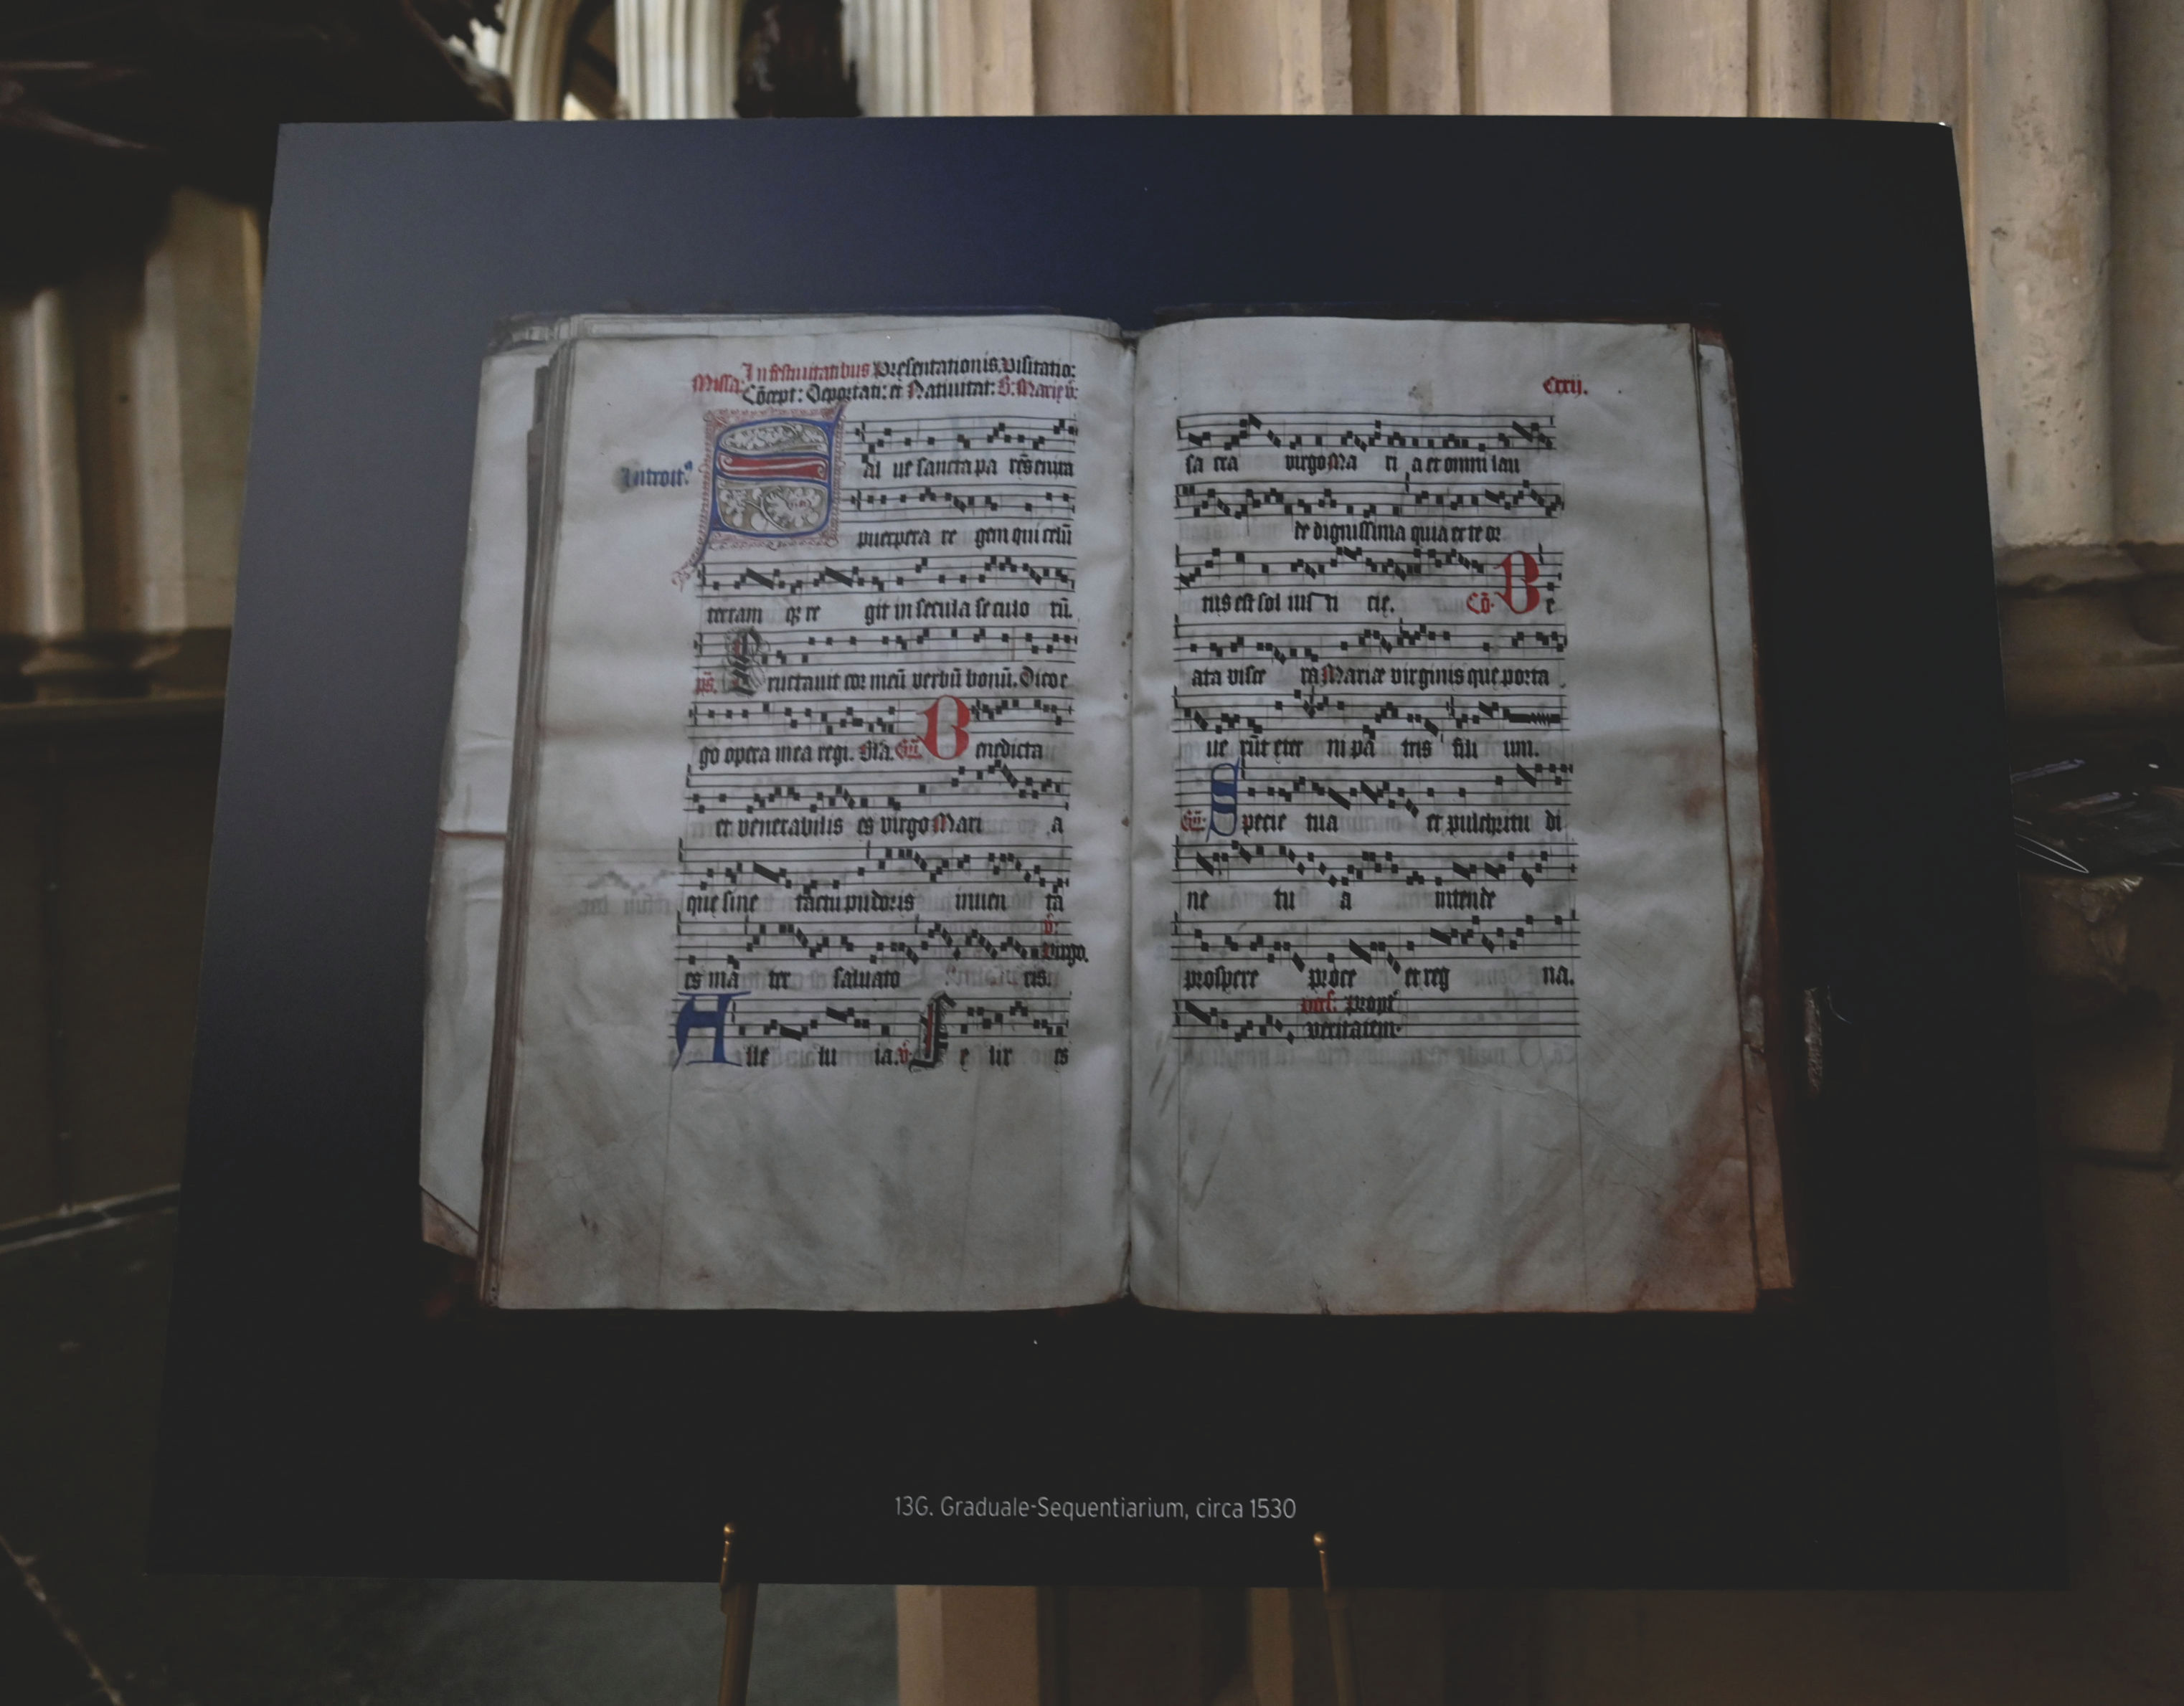 In festiuitatibus Presentationis, Visitatio:
Missa: Cōcept: Deportati: et Natiuitat: B: Marię v:
Introit9
Sal ue sancta pa rēs enixa
puerpera re gem qui celū
terram q3 re git in secula se culo rū.
ps. Eructauit cor meū verbū bonū. Dico e
go opera mea regi. Gū Benedicta
et venerabilis es virgo Mari a
quę sine tactu pudoris inuen ta
es ma ter saluato ris. v: Virgo.
Alle lu ia. v: Fe lix es
Cxxij.
sa cra virgo Ma ri a et omni lau
de dignissima quia ex te or
tus est sol iust ti cię. Cō. Be
ata visce ra Marię virginis que porta
ue rūt eter ni pa tris fili um.
Gū: Specie tua et pulchritu di
ne tu a intende
prospere proce et reg na.
vers: Propt'
veritatem.
13G. Graduale-Sequentiarium, circa 1530